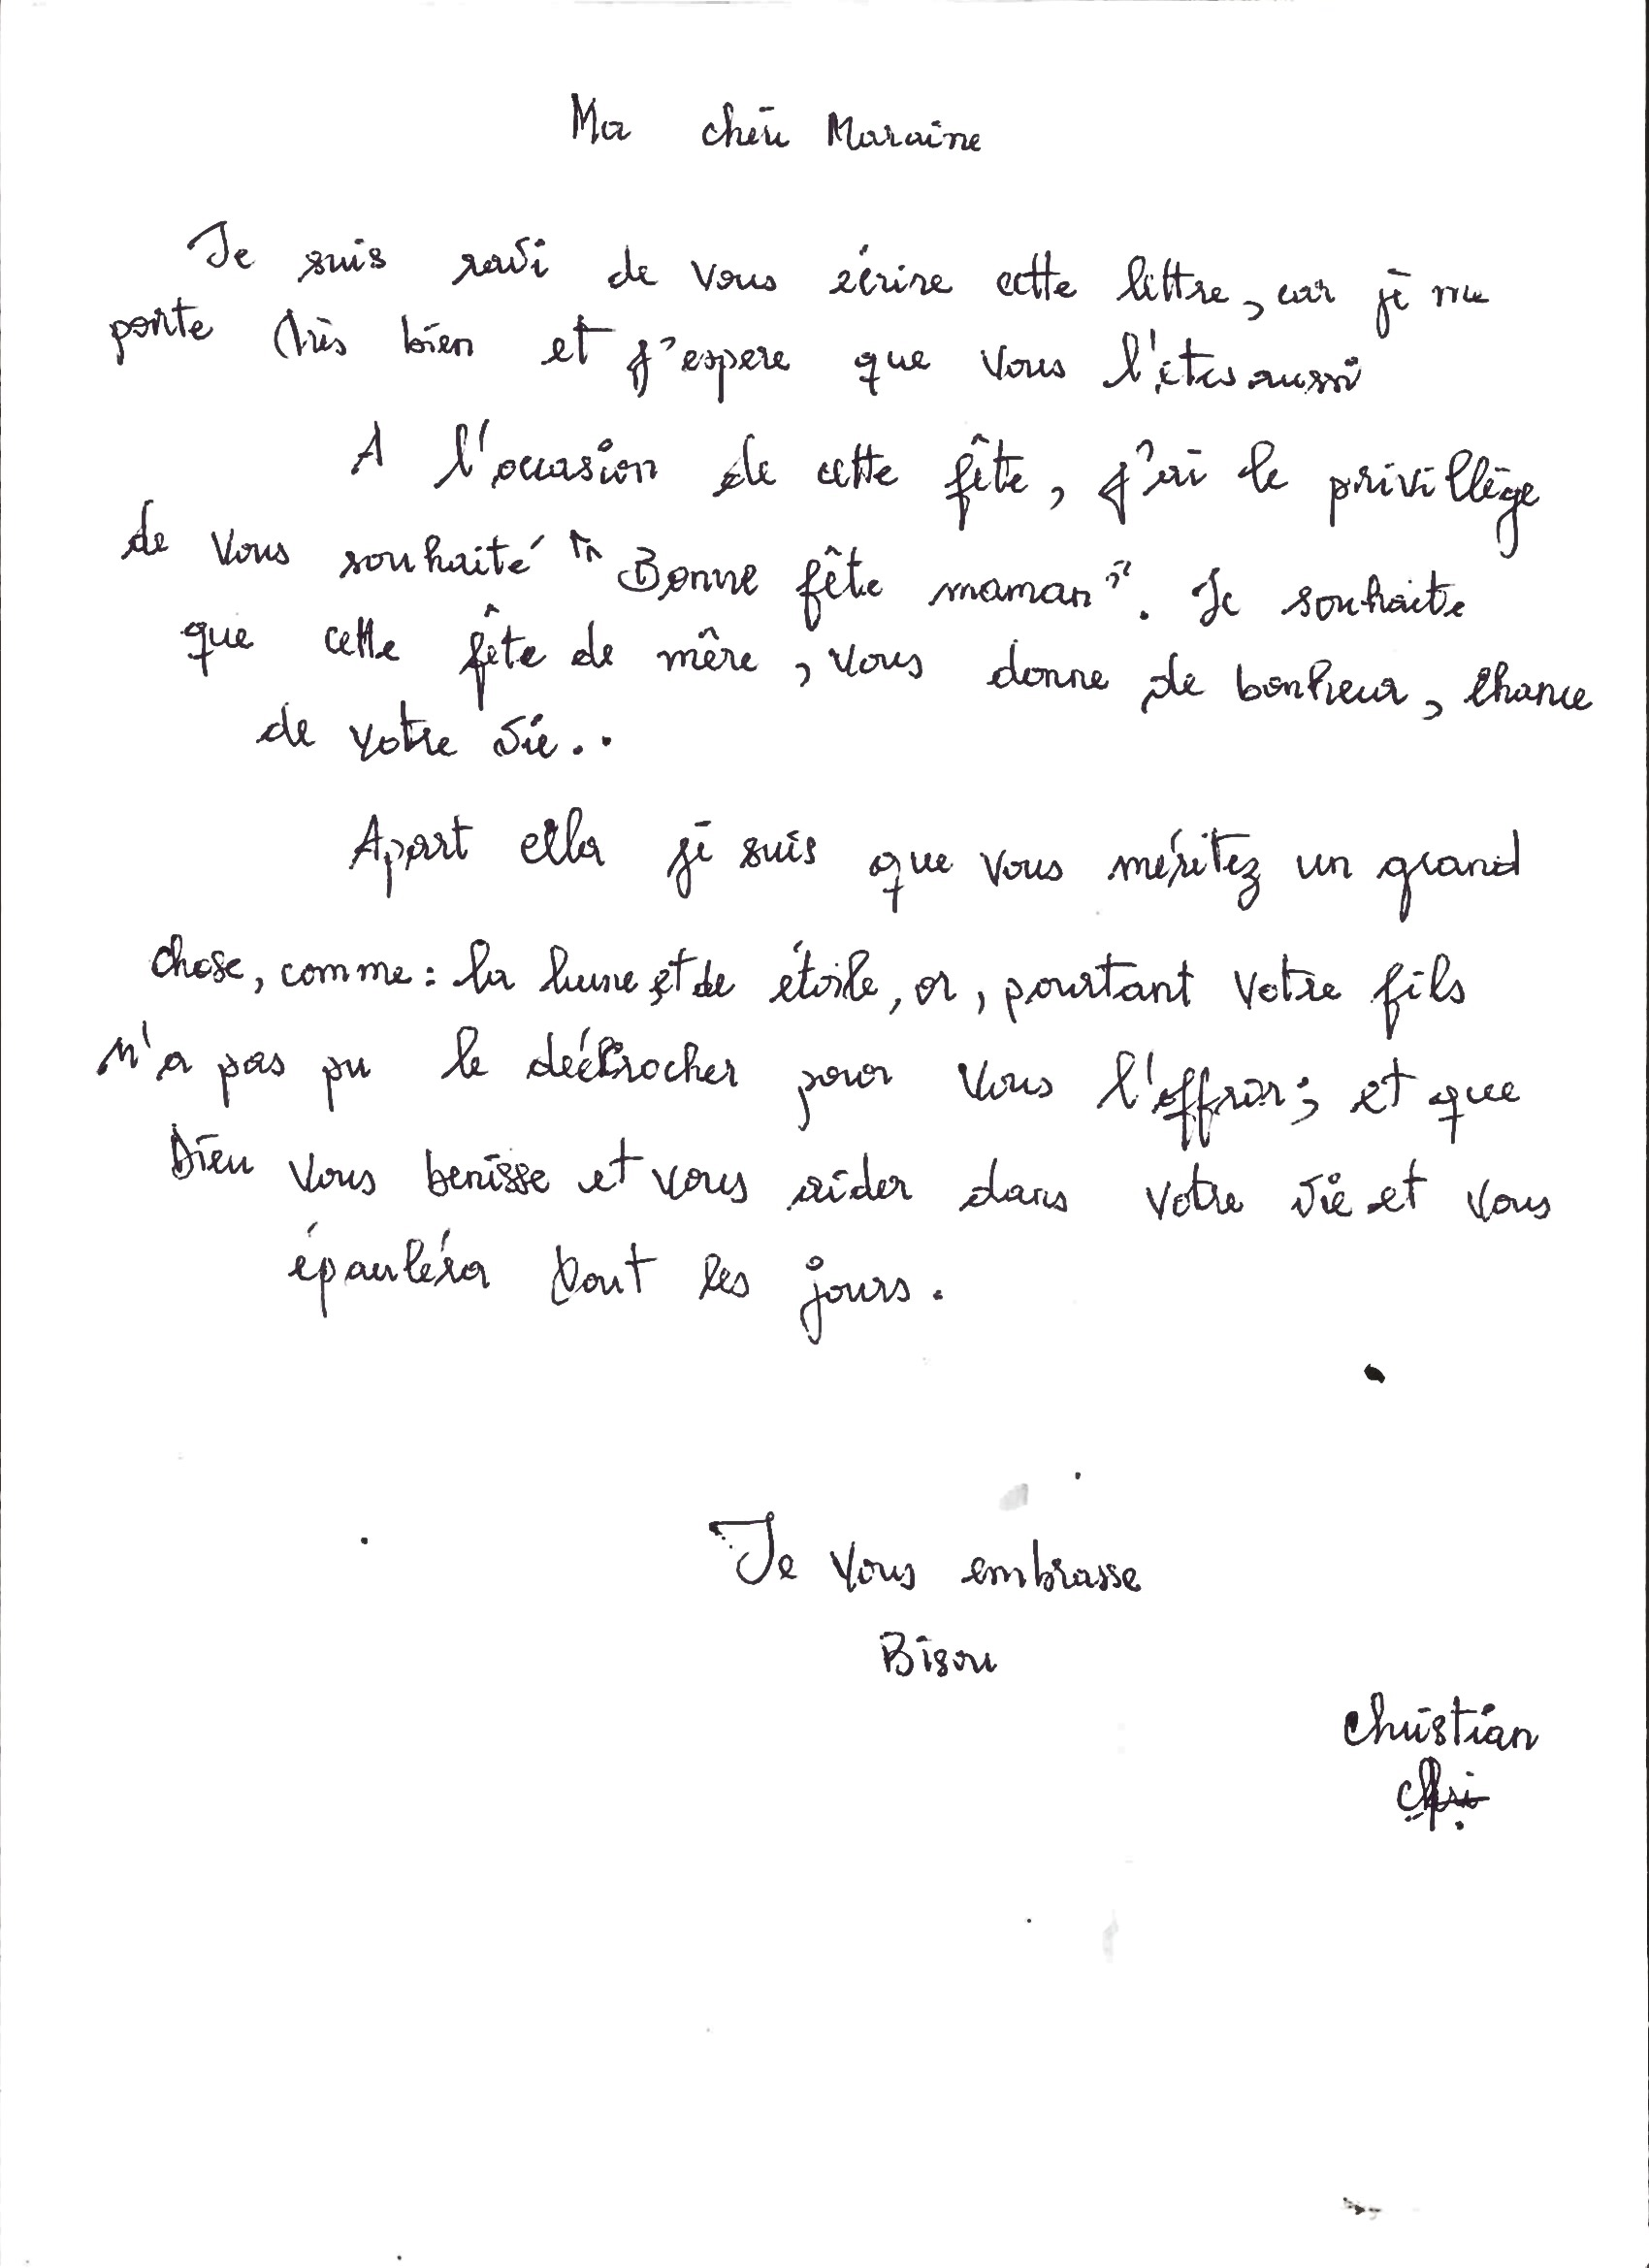 Ma chère Maraine
Je suis ravi de vous écrire cette lettre, car je me
porte très bien et j'espere que vous l'êtes aussi
A l'occasion de cette fête, j'ai le privillège
de vous souhaité "Bonne fête maman". Je souhaite
que cette fête de mère, vous donne de bonheur, chance
de votre vie..
Apart cela je suis que vous méritez un grand
chose, comme : la lune et de étoile, or, pourtant votre fils
n'a pas pu le décrocher pour vous l'offrir; et que
Dieu vous benisse et vous aider dans votre vie et vous
épauléra tout les jours.
Je vous embrasse
Bisou
Christian
Chri